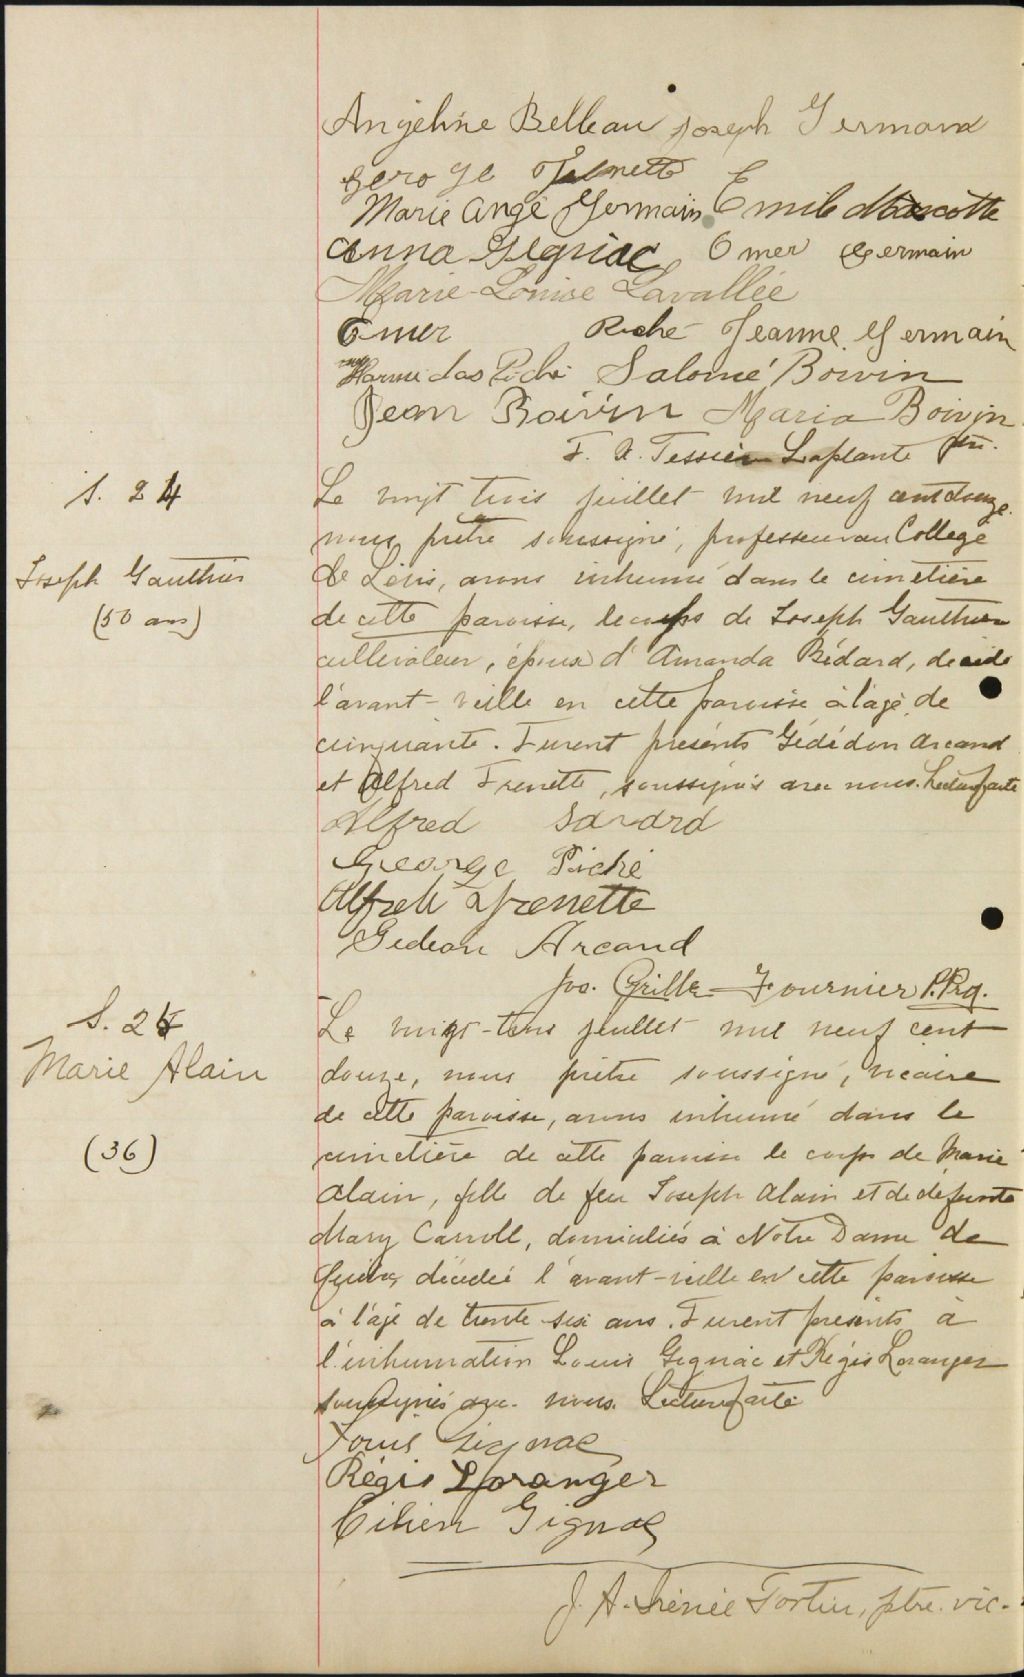 Angeline Belleau Joseph Germain
George Frenette
Marie Ange Germain Emile Marcotte
Anna Gignac Omer Germain
Marie-Louise Lavallée
Omer Piché Jeanne Germain
Harmidas Piché Salomé Boivin
Jean Boivin Maria Boivin
F. X. Tessier Laplante ptre.
S. 24
Joseph Gauthier
(50 ans)
Le vingt trois juillet mil neuf cent douze
nous prêtre soussigné, professeur au College
de Lévis, avons inhumé dans le cimetière
de cette paroisse, le corps de Joseph Gauthier
cultivateur, époux d'Amanda Bédard, décédé
l'avant-veille en cette paroisse à l'age de
cinquante. Furent présents Gédédon Arcand
et Alfred Frenette, soussignés avec nous. Lecture faite
Alfred Savard
George Piché
Alfred Frenette
Gedeon Arcand
Jos. Fournier
S. 25
Marie Alain
(36)
Le vingt-trois juillet mil neuf cent
douze, nous prêtre soussigné, vicaire
de cette paroisse, avons inhumé dans le
cimetière de cette paroisse le corps de Marie
Alain, fille de feu Joseph Alain et de defunte
Mary Carroll, domiciliés à Notre Dame de
Québec, décédée l'avant-veille en cette paroisse
à l'âge de trente-six ans. Furent présents à
l'inhumation Louis Gignac et Régis Loranger
soussignés avec nous. Lecture faite
Louis Gignac
Régis Loranger
Gignac
J. A. Irénée Fortin, ptre. vic.